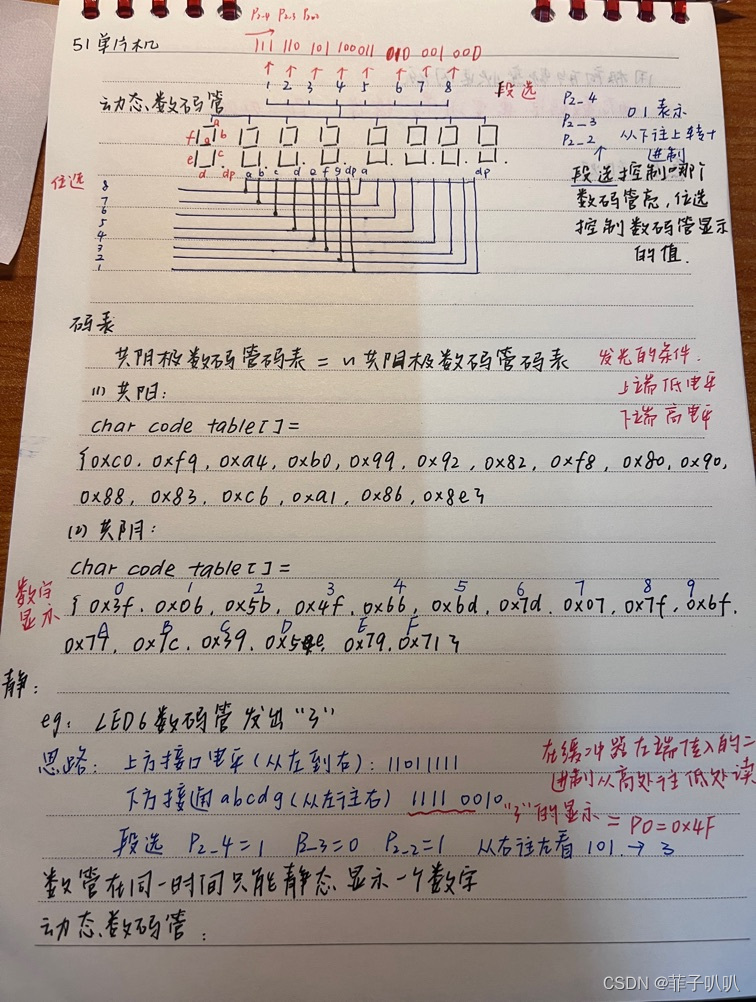 P2_4 P2_3 P2_2
51单片机
111 110 101 100 011 010 001 000
1 2 3 4 5 6 7 8
段选
动态数码管
P2_4
P2_3
P2_2
01表示
从下往上转十
进制
a
f g b
e c
d dp
a b c d e f g dp a dp
位选
8
7
6
5
4
3
2
1
段选控制哪个
数码管亮,位选
控制数码管显示
的值.
码表
共阴极数码管码表 = ~共阳极数码管码表
发光的条件.
上端低电平
下端高电平
(1) 共阳:
char code table[]=
{0xc0, 0xf9, 0xa4, 0xb0, 0x99, 0x92, 0x82, 0xf8, 0x80, 0x90,
0x88, 0x83, 0xc6, 0xa1, 0x86, 0x8e}
(2) 共阴:
char code table[]=
数字
显示
0 1 2 3 4 5 6 7 8 9
{0x3f, 0x06, 0x5b, 0x4f, 0x66, 0x6d, 0x7d, 0x07, 0x7f, 0x6f,
A B C D E F
0x77, 0x7c, 0x39, 0x5e, 0x79, 0x71}
静:
eg: LED6数码管发出“3”
思路: 上方接口电平(从左到右): 11011111
下方接通abcdg(从左往右) 1111 0010
“3”的显示 = P0=0x4F
在缓冲器左端传入的二
进制从高处往低处读
段选 P2_4=1 P2_3=0 P2_2=1 从右往左看 101. → 3
数管在同一时间只能静态显示一个数字
动态数码管:
CSDN @菲子叭叭